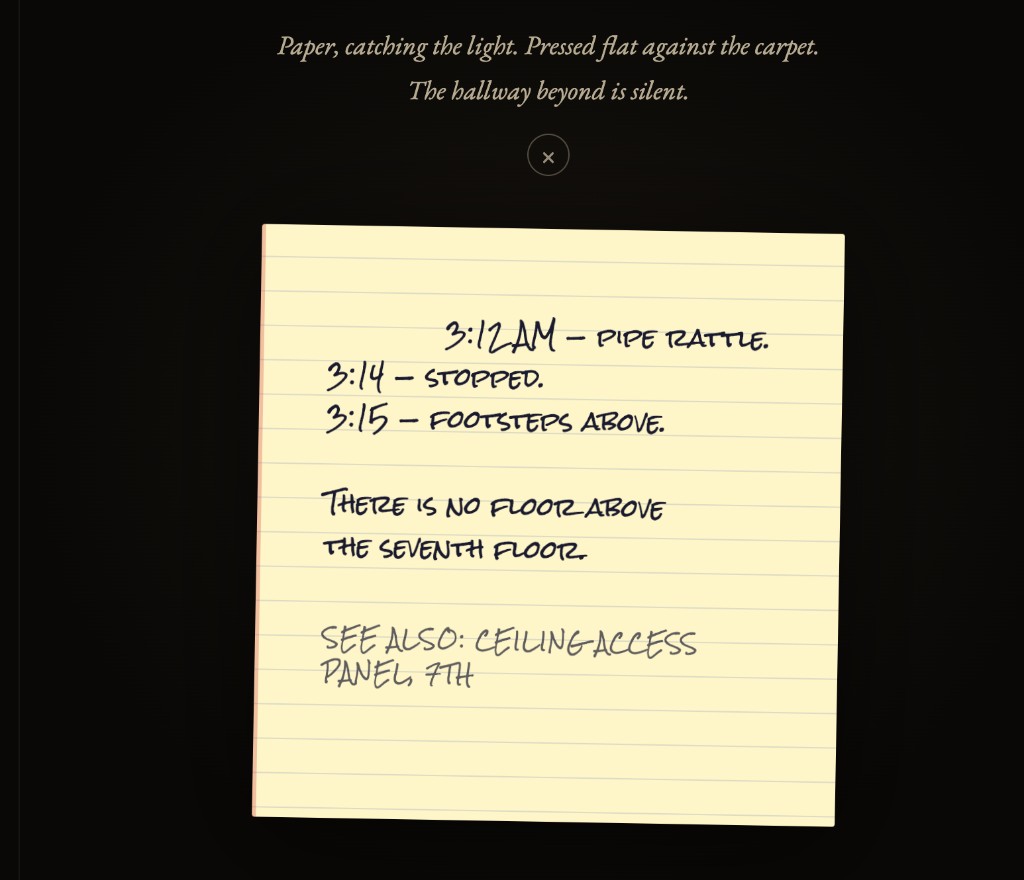 Paper, catching the light. Pressed flat against the carpet.
The hallway beyond is silent.
×
3:12AM — PIPE RATTLE.
3:14 — STOPPED.
3:15 — FOOTSTEPS ABOVE.
THERE IS NO FLOOR ABOVE
THE SEVENTH FLOOR.
SEE ALSO: CEILING ACCESS
PANEL, 7TH